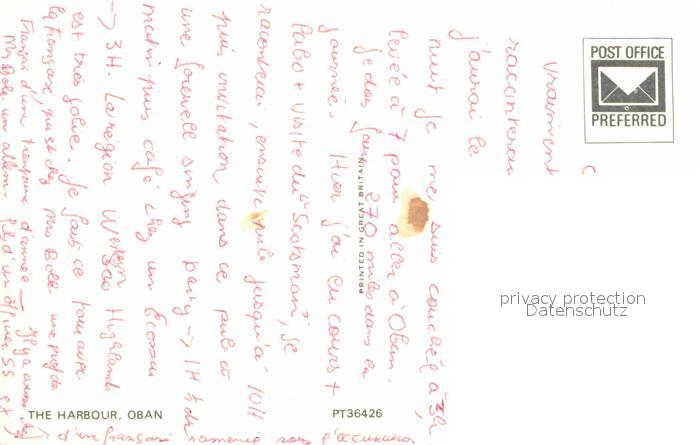 POST OFFICE
PREFERRED
vraiment
raconterai
j'aurai le
nuit je me suis couchée à 3h
levée à 7 pour aller à Oban.
je dois faire 270 miles dans la
journée. Hier j'ai eu cours +
Pubs + visite du "Scotsman", je
raconterai, ensuite jusqu'à 10H
puis invitation dans ce pub à
une farewell singing party → 1H ½ du
matin puis café chez un Ecossais
→ 3H. La région Western Highlands
est très jolie. Je fais ce tour avec
la française qui est chez Mrs Bell une prof de
Français d'une trentaine d'années
Mrs Bell un allemand fils d'un officier SS et
d'une française sous l'occupation
PRINTED IN GREAT BRITAIN
THE HARBOUR, OBAN
PT36426
privacy protection
Datenschutz